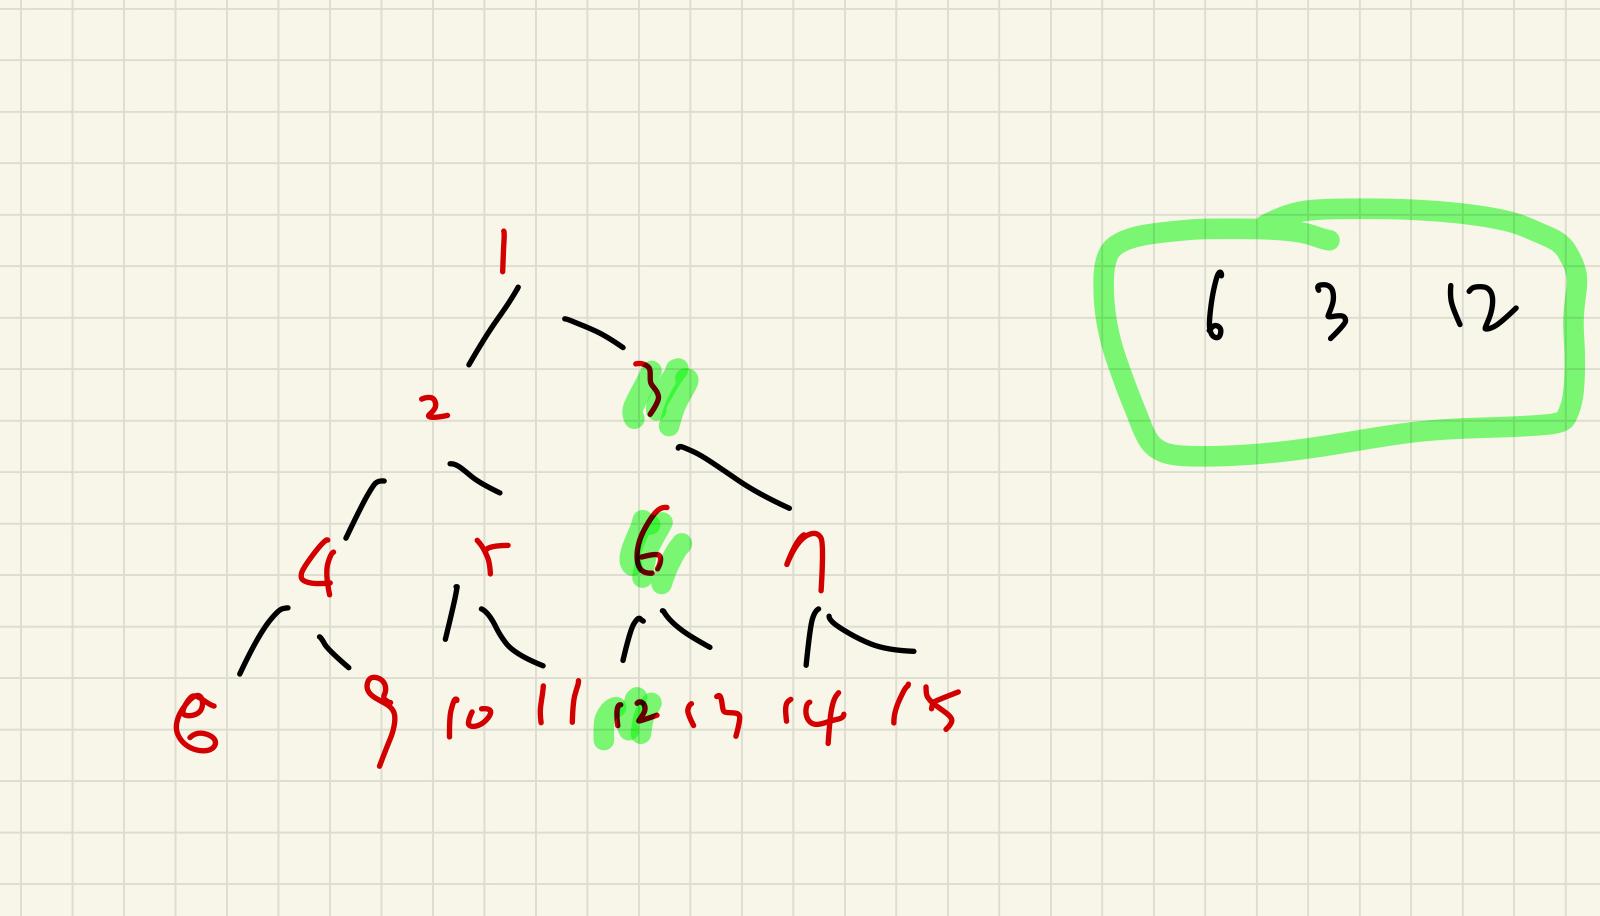 1
2 3
4 5 6 7
8 9 10 11 12 13 14 15
6 3 12